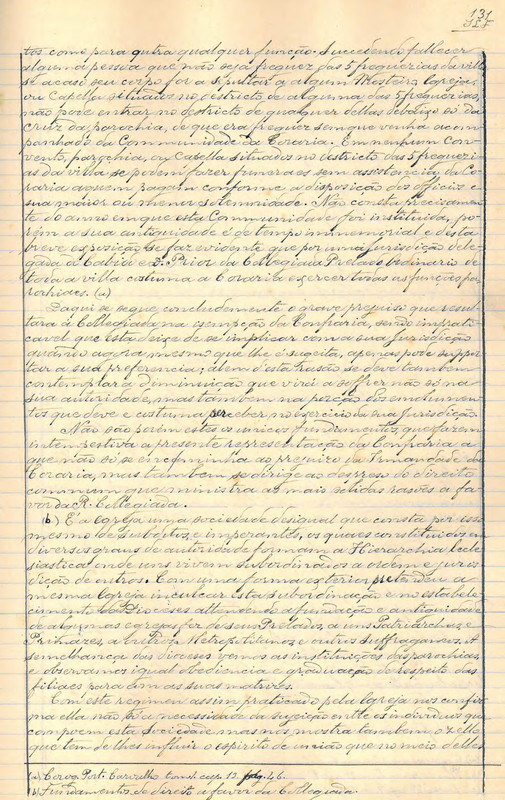 131
tos como para outra qualquer função. Succedendo fallecer
alguma pessoa que não seja freguez das 5 freguezias da villa
se acaso seu corpo for a sepultar a algum Mosteiro, Igreja,
ou Capella situados no destricto de alguma das 5 freguezias,
não pode entrar no destricto de qualquer dellas debaixo só da
cruz da parochia, de que era freguez sem que venha acom
panhado da Communidade da Coraria. Em nenhum Con
vento, parochia, ou Capella situados no destricto das 5 freguezi
as da villa se podem fazer funeraes sem assistencia da Co
raria a quem pagam conforme a disposição dos officios e
sua maior ou menor solemnidade. Não consta precisamen
te do anno em que esta Communidade foi instituida, po
rém a sua antiguidade é de tempo immemorial e desta
breve exposição se faz evidente que por uma jurisdição dele
gada do Cabido e D. Prior da Collegiada Prelado Ordinario de
toda a villa costuma a Coraria exercer todas as funções pa
rochiaes. (a)
Daqui se segue, concludemente o grave prejuiso que resul
tará á Collegiada na isempção da Confraria, sendo imprati
cavel que esta deixe de se implicar com a sua jurisdição
quando agora mesmo que lhe é sugeita, apenas pode suppor
tar a sua preferencia; alem desta rasão se deve tambem
contemplar a diminuição que virá a soffrer não só na
sua autoridade, mas tambem na porção dos emolumen
tos que deve e costuma perceber no exercicio da sua jurisdição.
Não são porém estes os unicos fundamentos que fazem
intempestiva a presente representação da Confraria a
que não só se encaminha ao prejuizo da Irmandade da
Coraria, mas tambem se dirige ao desprezo do direito
commum que ministra as mais solidas rasões a fa
vor da R. Collegiada.
(b) É a Egreja uma sociedade desigual que consta por isso
mesmo de subditos, e imperantes, os quaes constituidos em
diversos graus de autoridade formam a Hierarchia Eccle
siastica onde uns vivem subordinados a ordem e juris
dição de outros. Com uma forma exterior pretendeu a
mesma Igreja inculcar esta subordinação e no estabele
cimento de Dioceses attendendo a fundação e antiguidade
de algumas egrejas, fez de seus Prelados, a uns Patriarchas e
Primazes, a outros Metropolitanos e outros Suffraganeos. Á
semelhança das dioceses vemos as instituições das parochias,
e observamos igual obediencia e graduação de respeito das
filiaes para com as suas matrizes.
Com este regimen assim praticado pela Igreja nos confir
ma ella não só a necessidade da sugeição entre os individuos que
compoem esta sociedade mas nos mostra tambem o zello
que tem de lhes influir o espirito de união que no meio delles
(a) Corog. Port. Carvalho tom. 1. cap. 13. pag. 46.
(b) Fundamentos de direito a favor da Collegiada.